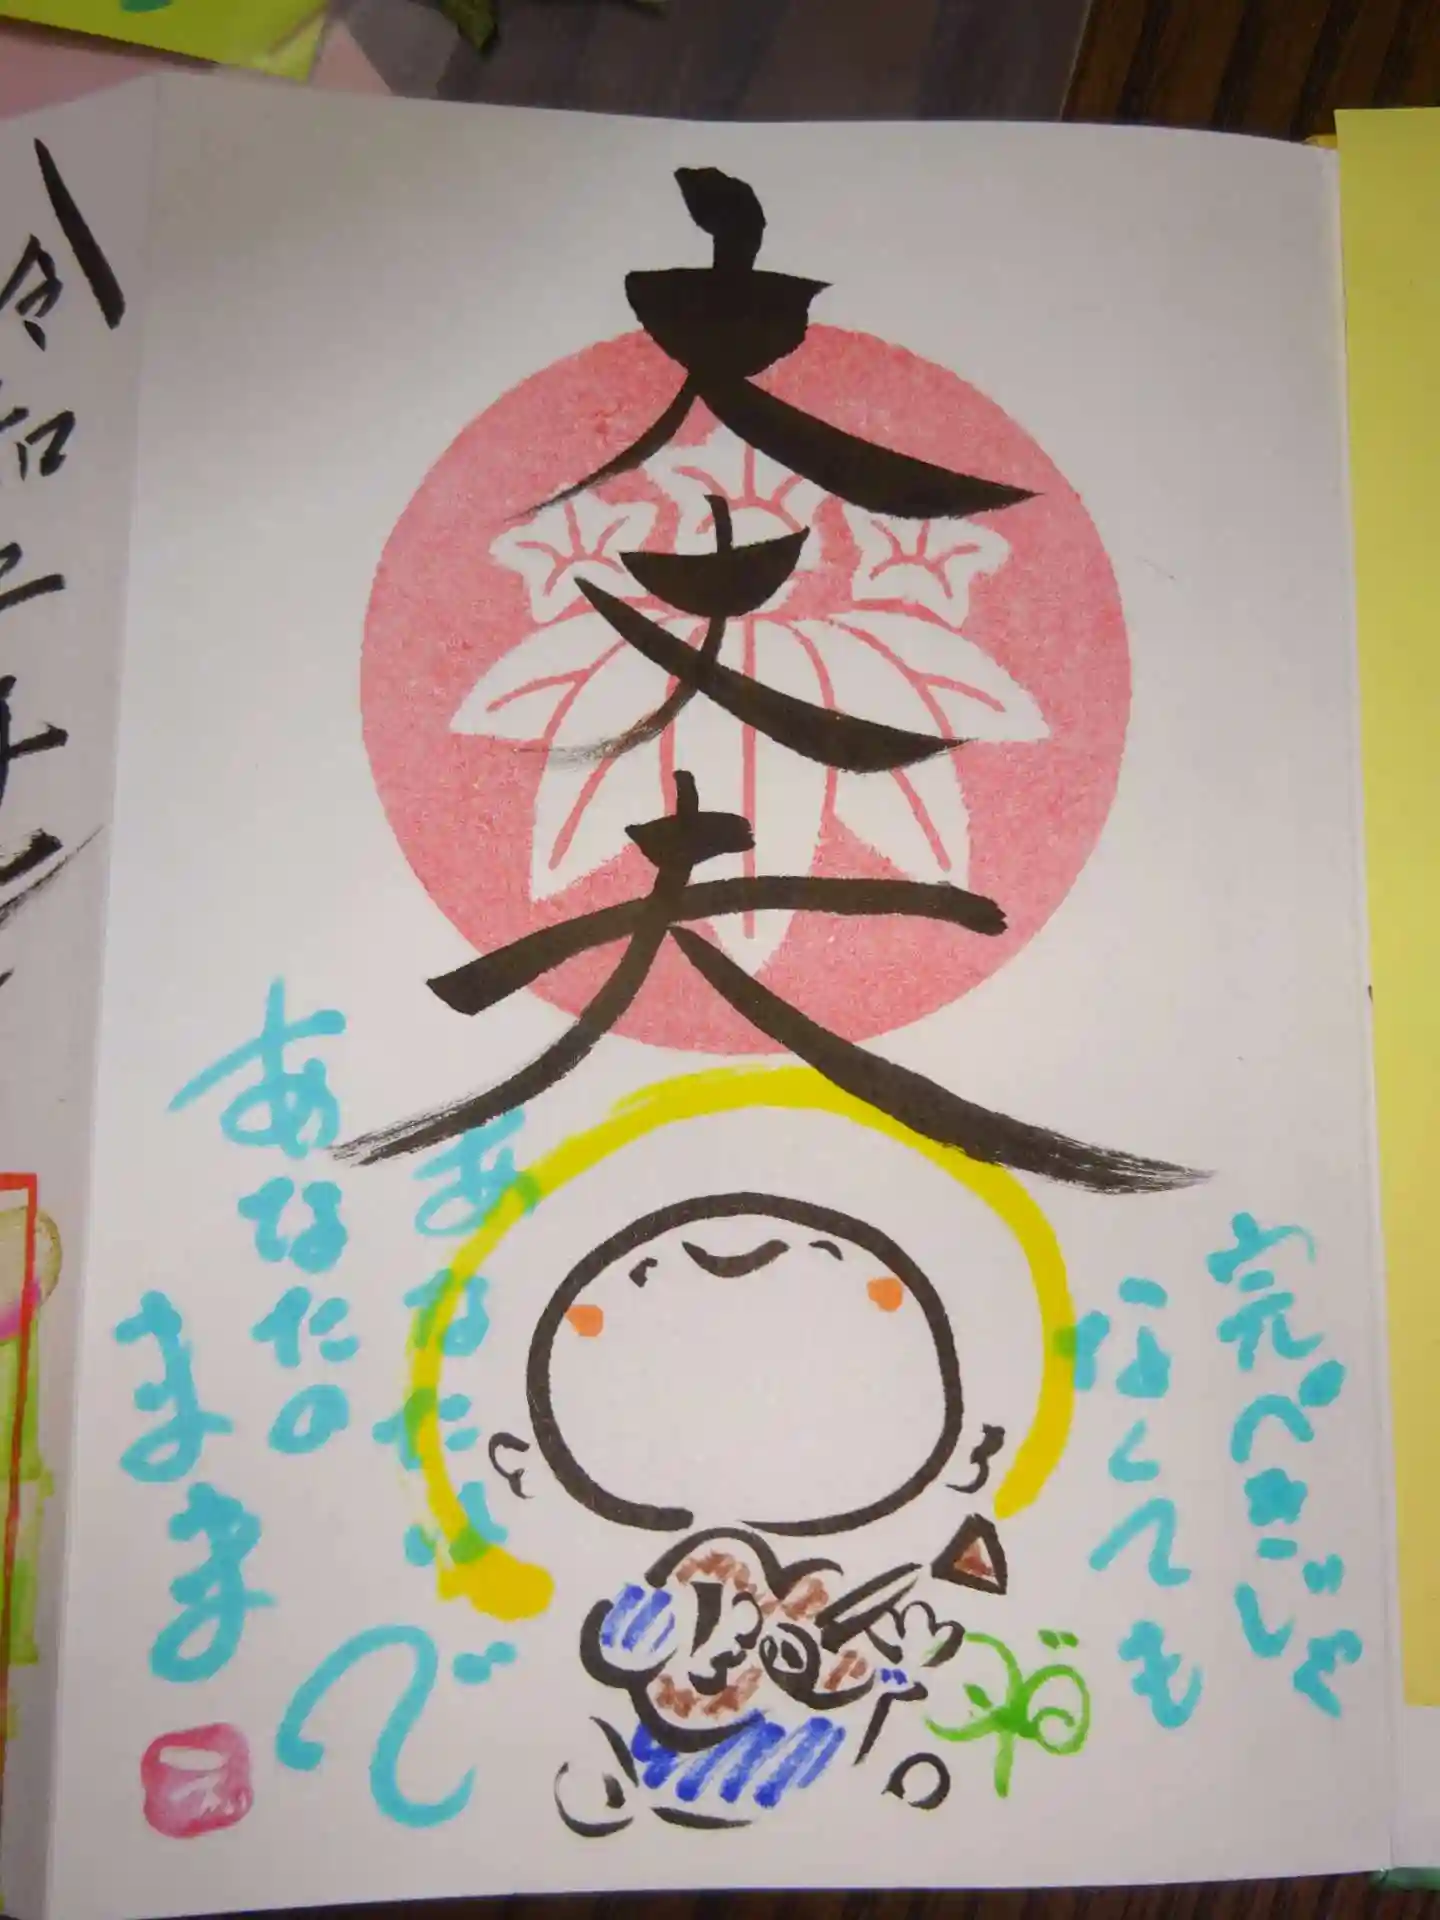 大丈夫
完ぺきじゃ
なくても
あなたは
あなたの
まま
で
令和二年